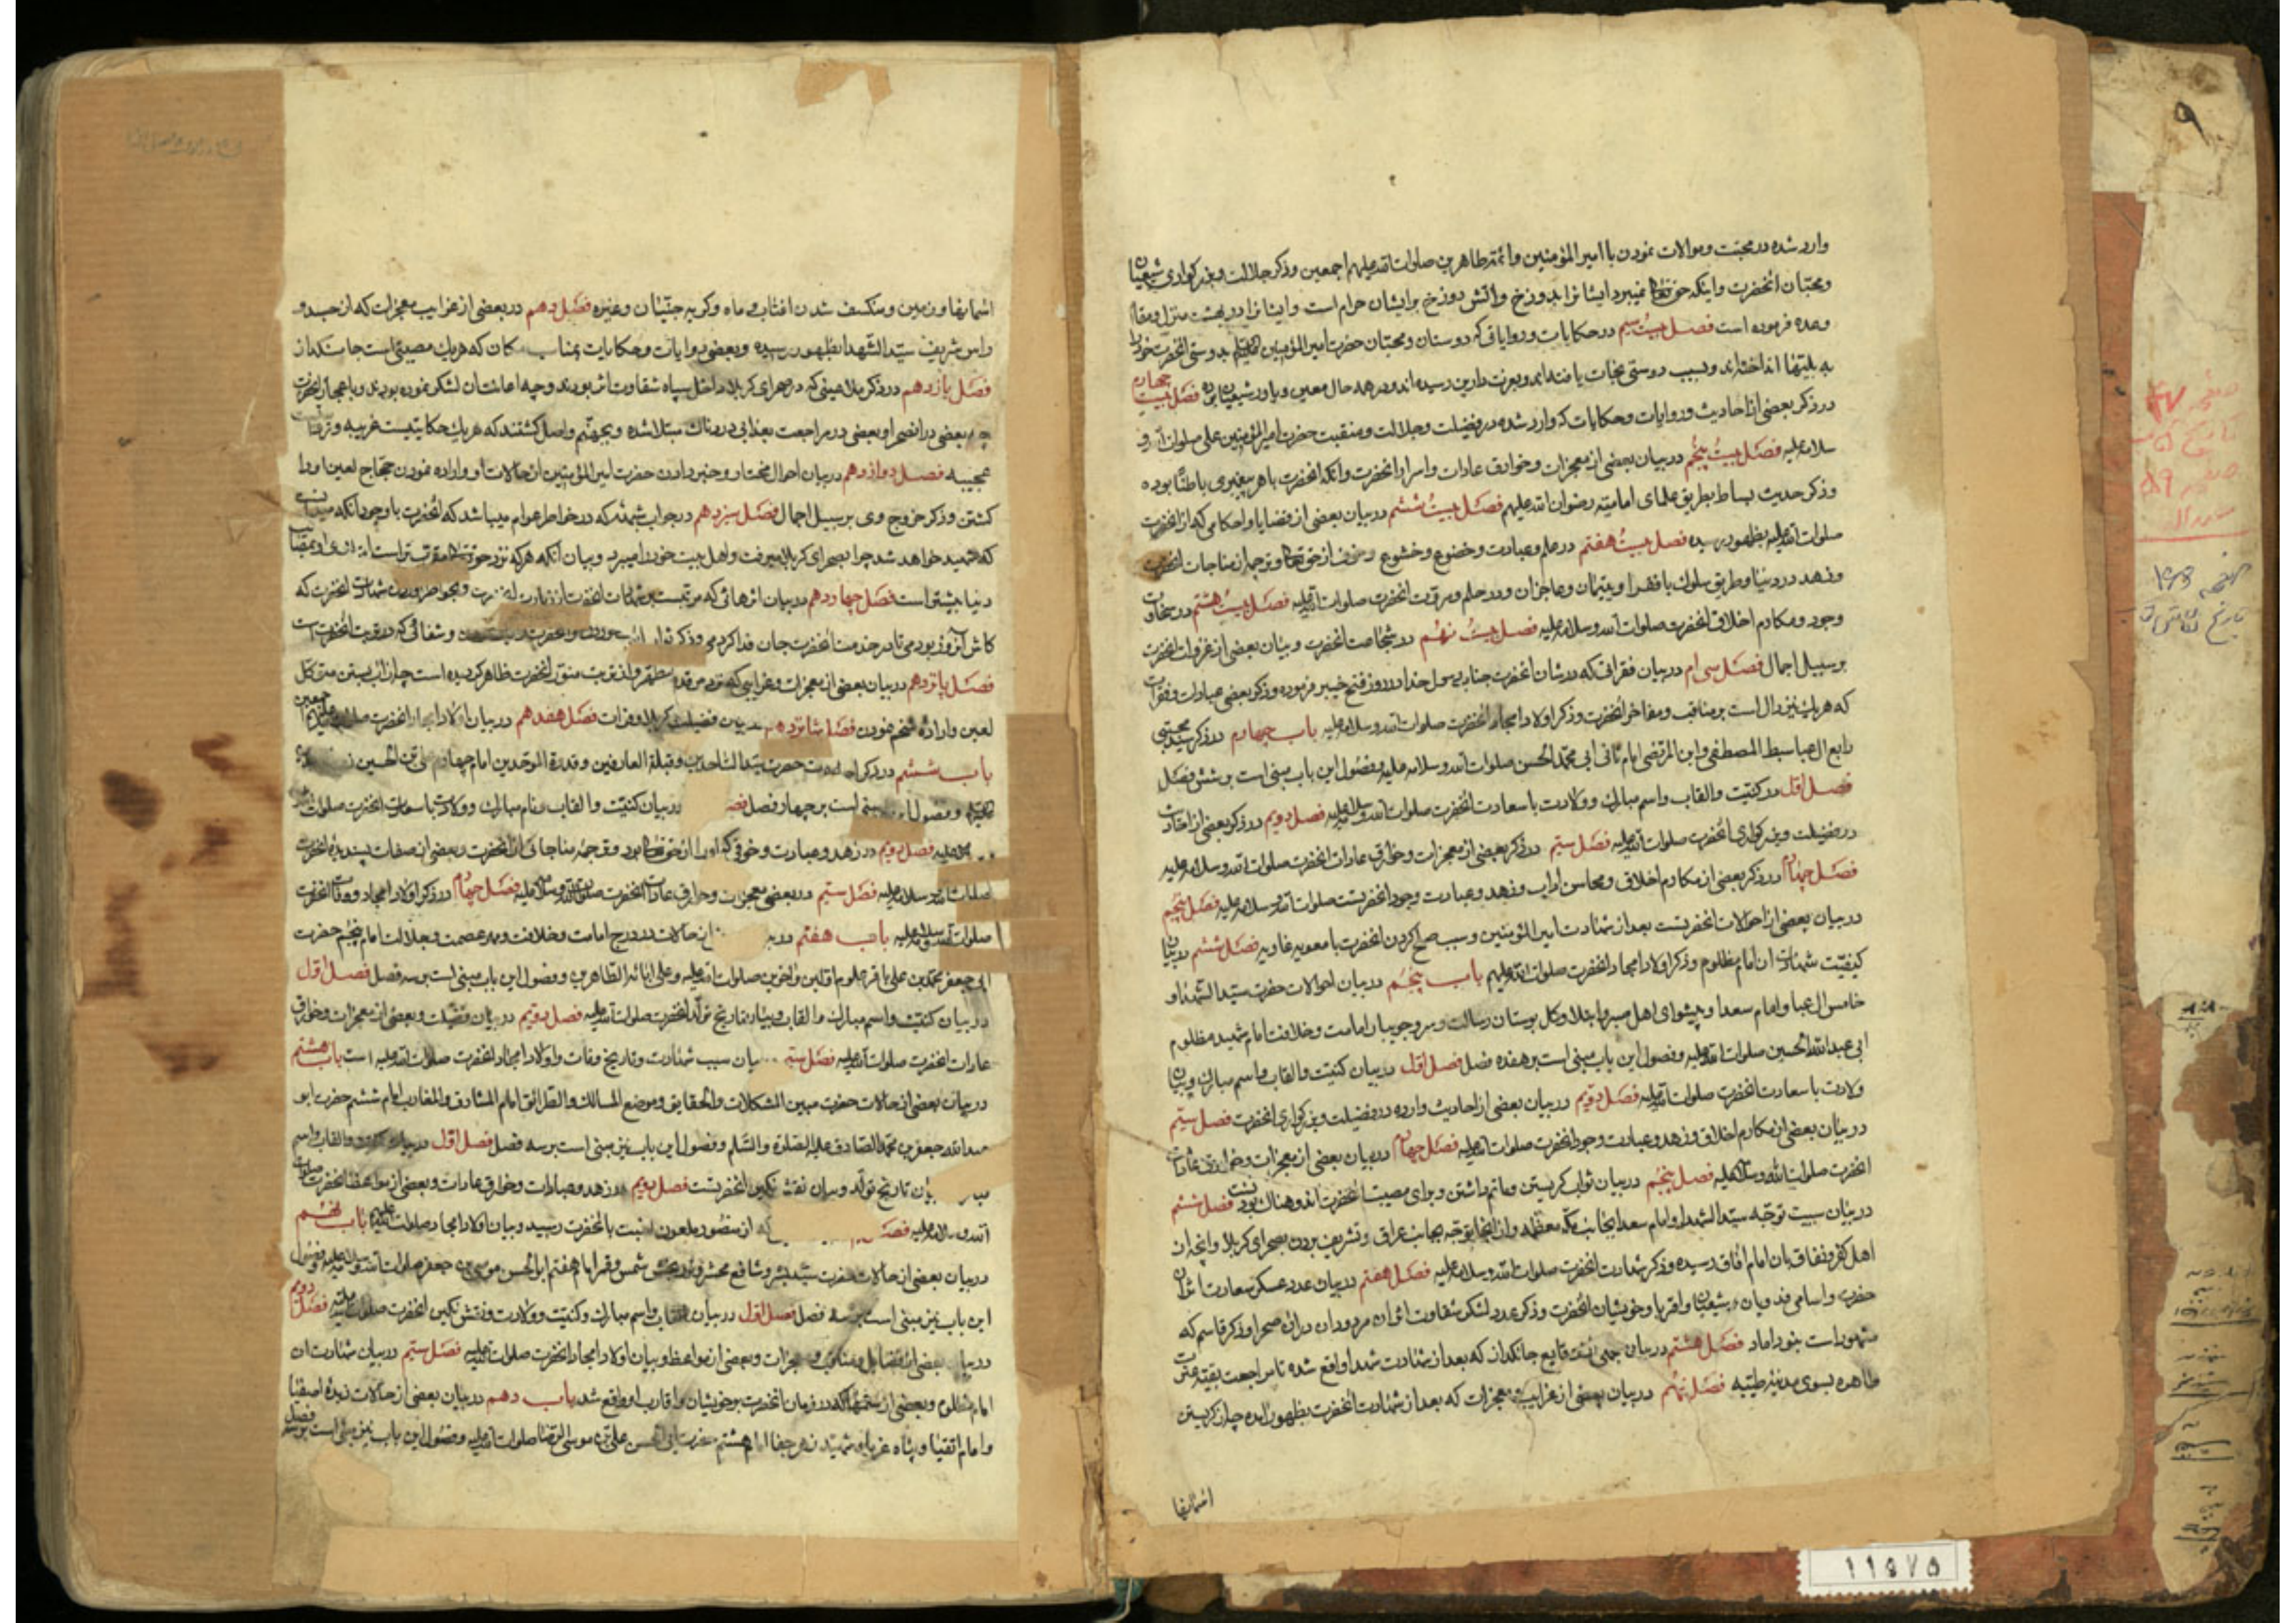 وارد شده در محبت و موالات نمودن با امیر المؤمنین و ائمه طاهرین صلوات الله علیهم اجمعین و ذکر جلالت و بزرکواری شیعیان
و محبان انحضرت و اینکه حق تعالی نمیبرد ایشانرا بدوزخ و اتش دوزخ بر ایشان حرام است و ایشانرا در بهشت منزل و مقام
وعده فرموده است فصل بیست سیم در حکایات و روایاتی که دوستان و محبان حضرت امیر المؤمنین بدوستی انحضرت خود را
به بلیتها انداخته‌اند و بسبب دوستی نجات یافته‌اند و بعزت دارین رسیده‌اند و در همه حال معین و یاور شیعیان فصل بیست چهارم
در ذکر بعضی از احادیث و روایات و حکایات که وارد شده در فضیلت و جلالت و منقبت حضرت امیر المؤمنین علی صلوات الله و
سلامه علیه فصل بیست پنجم در بیان بعضی از معجزات و خوارق عادات و اسرار انحضرت و انکه انحضرت با هر پیغمبری باطنا بوده
و ذکر حدیث بساط بطریق علمای امامیه رضوان الله علیهم فصل بیست ششم در بیان بعضی از قضایا و احکامی که از انحضرت
صلوات الله علیه بظهور رسیده فصل بیست هفتم در علم و عبادت و خضوع و خشوع و خوف از حق تعالی و ترجمه مناجات انحضرت
و زهد در دنیا و طریق سلوک با فقرا و یتیمان و عاجزان و در حلم و مروت انحضرت صلوات الله علیه فصل بیست هشتم در سخاوت
وجود و مکارم اخلاق انحضرت صلوات الله و سلامه علیه فصل بیست نهم در شجاعت انحضرت و بیان بعضی از غزوات انحضرت
بر سبیل اجمال فصل سی ام در بیان فقراتی که در شان انحضرت جناب رسول خدا در روز فتح خیبر فرموده و ذکر بعضی عبادات و فقرات
که هر یک نیز دال است بر مناقب و مفاخر انحضرت و ذکر اولاد امجاد انحضرت صلوات الله و سلامه علیه باب چهارم در ذکر سید مجتبی
رابع ال عبا سبط المصطفی و ابن المرتضی امام ثانی ابی محمد الحسن صلوات الله و سلامه علیه و فصول این باب مبنی است بر شش فصل
فصل اول در کنیت و القاب و اسم مبارک و ولادت با سعادت انحضرت صلوات الله و سلامه علیه فصل دویم در ذکر بعضی از احادیث
در فضیلت و بزرکواری انحضرت صلوات الله علیه فصل سیم در ذکر بعضی از معجزات و خوارق عادات انحضرت صلوات الله و سلامه علیه
فصل چهارم در ذکر بعضی از مکارم اخلاق و محاسن اداب و زهد و عبادت وجود انحضرتست صلوات الله و سلامه علیه فصل پنجم
در بیان بعضی از احوالات انحضرتست بعد از شهادت امیر المؤمنین و سبب صلح کردن انحضرت با معویه غاویه فصل ششم در بیان
کیفیت شهادت ان امام مظلوم و ذکر اولاد امجاد انحضرت صلوات الله علیهم باب پنجم در بیان احوالات حضرت سید الشهدا و
خامس ال عبا و امام سعدا و پیشوای اهل صبر و ابتلا و کل بوستان رسالت و سرو جویبار امامت و خلافت امام شهید مظلوم
ابی عبد الله الحسین صلوات الله علیه و فصول این باب مبنی است بر هفده فصل فصل اول در بیان کنیت و القاب و اسم مبارک و بیان
ولادت با سعادت انحضرت صلوات الله علیه فصل دویم در بیان بعضی از احادیث وارده در فضیلت و بزرکواری انحضرت فصل سیم
در بیان بعضی از مکارم اخلاق و زهد و عبادت وجود انحضرت صلوات الله علیه فصل چهارم در بیان بعضی از معجزات و خوارق عادات
انحضرت صلوات الله و سلامه علیه فصل پنجم در بیان ثواب کریستن و ماتم داشتن و برای مصیبت انحضرت فصل ششم
در بیان سبب توجه سید الشهدا و امام سعدا بجانب مکه معظمه و از انجا توجه بجانب عراق و تشریف بردن بصحرای کربلا و انچه از
اهل کفر و نفاق بان امام افاق رسیده و ذکر شهادت انحضرت صلوات الله و سلامه علیه فصل هفتم در بیان عدد عسکر سعادت اثر ان
حضرت و اسامی و شیعیان و اقربا و خویشان انحضرت و ذکر عدد لشکر شقاوت اثر ان مردودان در ان صحرا و ذکر قاسم که
مشهور است بنو داماد فصل هشتم در بیان وقایع جانکداز که بعد از شهادت شهدا واقع شده تا مراجعت بقیه عترت
طاهره بسوی مدینه طیبه فصل نهم در بیان بعضی از غرایب معجزات که بعد از شهادت انحضرت بظهور امده چه از کریستن
اسمانها
اسمانها و زمین و منکسف شدن افتاب و ماه و کریه جنیان و غیره فصل دهم در بعضی از غرایب معجزات که از جسد و
راس شریف سید الشهدا بظهور رسیده و بعضی روایات و حکایات بمناسب مکان که هر یک مصیبتی است جانکداز
فصل یازدهم در ذکر ملاعینی که در صحرای کربلا داخل سپاه شقاوت اثر بودند و چه اعانتان لشکر نموده بودند و باعجاز انحضرت
بعضی در انصحرا و بعضی در مراجعت بعذابی دردناک مبتلا شده و بجهنم واصل کشتند که هر یک حکایتیست غریبه و
عجیبه فصل دوازدهم در بیان احوال مختار و خبر دادن حضرت امیر المؤمنین از حالات او و اراده نمودن حجاج لعین او را
کشتن و ذکر خروج وی بر سبیل اجمال فصل سیزدهم در جواب شبهه که در خواطر عوام میباشد که انحضرت با وجود انکه میدانست
که شهید خواهد شد چرا بصحرای کربلا میرفت و اهل بیت خود را میبرد و بیان انکه هر که نزد حق تعالی مقرب تر است
دنیا بیشتر است فصل چهاردهم در بیان اثرهائی که انحضرت که
کاش انروز بودمی تا در خدمت انحضرت جان فدا کردمی و ذکر و شفائی که در تربت انحضرت است
فصل پانزدهم در بیان بعضی از معجزات و غرایبی که مرقد مطهر و از تربت منور انحضرت ظاهر کردیده است چه از اب بستن متوکل
لعین و اراده شخم نمودن فصل شانزدهم در بیان فضیلت کربلا و فرات فصل هفدهم در بیان اولاد امجاد انحضرت
باب ششم در ذکر حضرت سید الساجدین و قبلة العارفین و قدوة الموحدین امام چهارم علی بن الحسین
و فصول است بر چهار فصل در بیان کنیت و القاب و نام مبارک و ولادت با سعادت انحضرت صلوات
علیه فصل دویم در زهد و عبادت و خوفی که او را از حق تعالی بود و ترجمه مناجاتی از انحضرت و بعضی از صفات پسندیده انحضرت
صلوات الله و سلامه علیه فصل سیم در بعضی معجزات و خوارق عادات انحضرت صلوات الله و سلامه علیه فصل چهارم در ذکر اولاد امجاد و وفات انحضرت
صلوات الله و سلامه علیه باب هفتم در از حالات در درج امامت و خلافت و مهر عصمت و جلالت امام پنجم حضرت
ابی جعفر محمد بن علی باقر علوم اولین و اخرین صلوات الله علیه و علی ابائه الطاهرین و فصول این باب مبنی است بر سه فصل فصل اول
در بیان کنیت و اسم مبارک و القاب و بیان تاریخ تولد انحضرت صلوات الله علیه فصل دویم در بیان فضیلت و بعضی از معجزات و خوارق
عادات انحضرت صلوات الله علیه فصل سیم بیان سبب شهادت و تاریخ وفات و اولاد امجاد انحضرت صلوات الله علیه است باب هشتم
در بیان بعضی از حالات حضرت مبین المشکلات و الحقایق و موضح المسالک و الطرائق امام المشارق و المغارب امام ششم حضرت ابو
عبد الله جعفر بن محمد الصادق علیه الصلوة و السلام و فصول این باب نیز مبنی است بر سه فصل فصل اول در بیان کنیت و القاب و اسم
بیان تاریخ تولد و بیان نقش نکین انحضرتست فصل دویم در زهد و عبادات و خوارق عادات و بعضی از مواعظ انحضرت صلوات
الله و سلامه علیه از منصور ملعون نسبت بانحضرت رسید و بیان اولاد امجاد صلوات الله علیه باب نهم
در بیان بعضی از حالات حضرت سید بشر و شافع محشر شمس و قمر امام هفتم ابو الحسن موسی بن جعفر صلوات الله و سلامه علیه و فصول
این باب نیز مبنی است بر سه فصل فصل اول در بیان القاب و اسم مبارک و کنیت و ولادت و نقش نکین انحضرت صلوات الله علیه فصل دویم
در بیان بعضی از فضایل و مناقب و معجزات و بعضی از مواعظ و بیان اولاد امجاد انحضرت صلوات الله علیه فصل سیم در بیان شهادت ان
امام مظلوم و بعضی از ستمها که در زمان انحضرت بر خویشان و اقارب او واقع شد باب دهم در بیان بعضی از حالات زبده اصفیا
و امام اتقیا و پناه غربا و شهید زهر جفا امام هشتم حضرت ابی الحسن علی بن موسی الرضا صلوات الله علیه و فصول این باب نیز مبنی است بر سه فصل
۹
11575